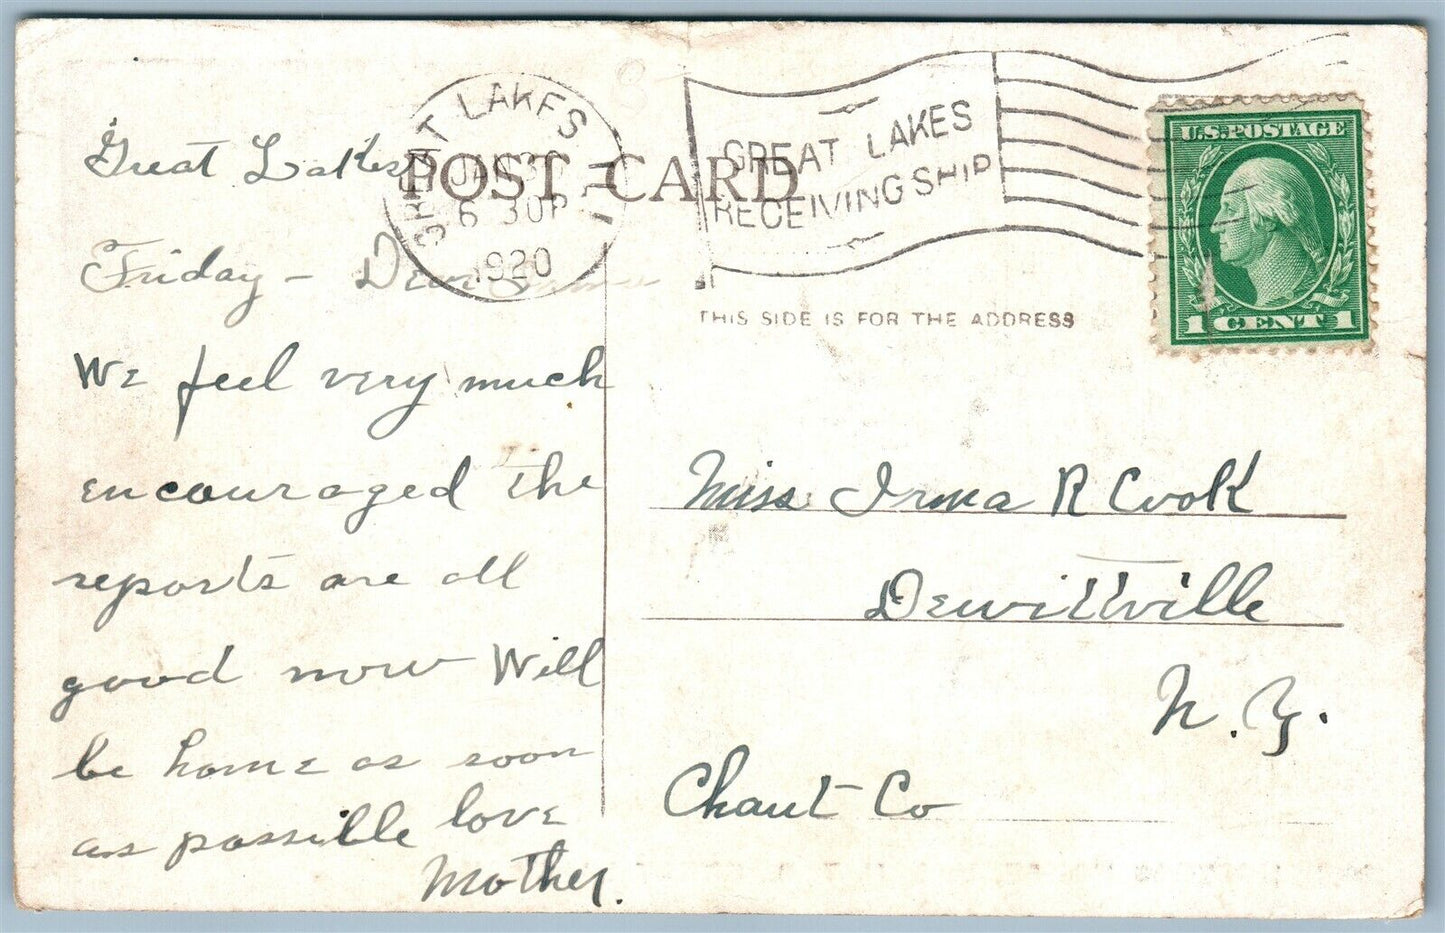 Great Lakes
Friday - Dear Irma
We feel very much
encouraged the
reports are all
good now Will
be home as soon
as possible love
Mother.
POST CARD
GREAT LAKES
JAN 30
6 30P
1920
ILL
GREAT LAKES
RECEIVING SHIP
U.S. POSTAGE
1 CENT 1
THIS SIDE IS FOR THE ADDRESS
Miss Irma R Cook
Dewittville
N.Y.
Chaut Co